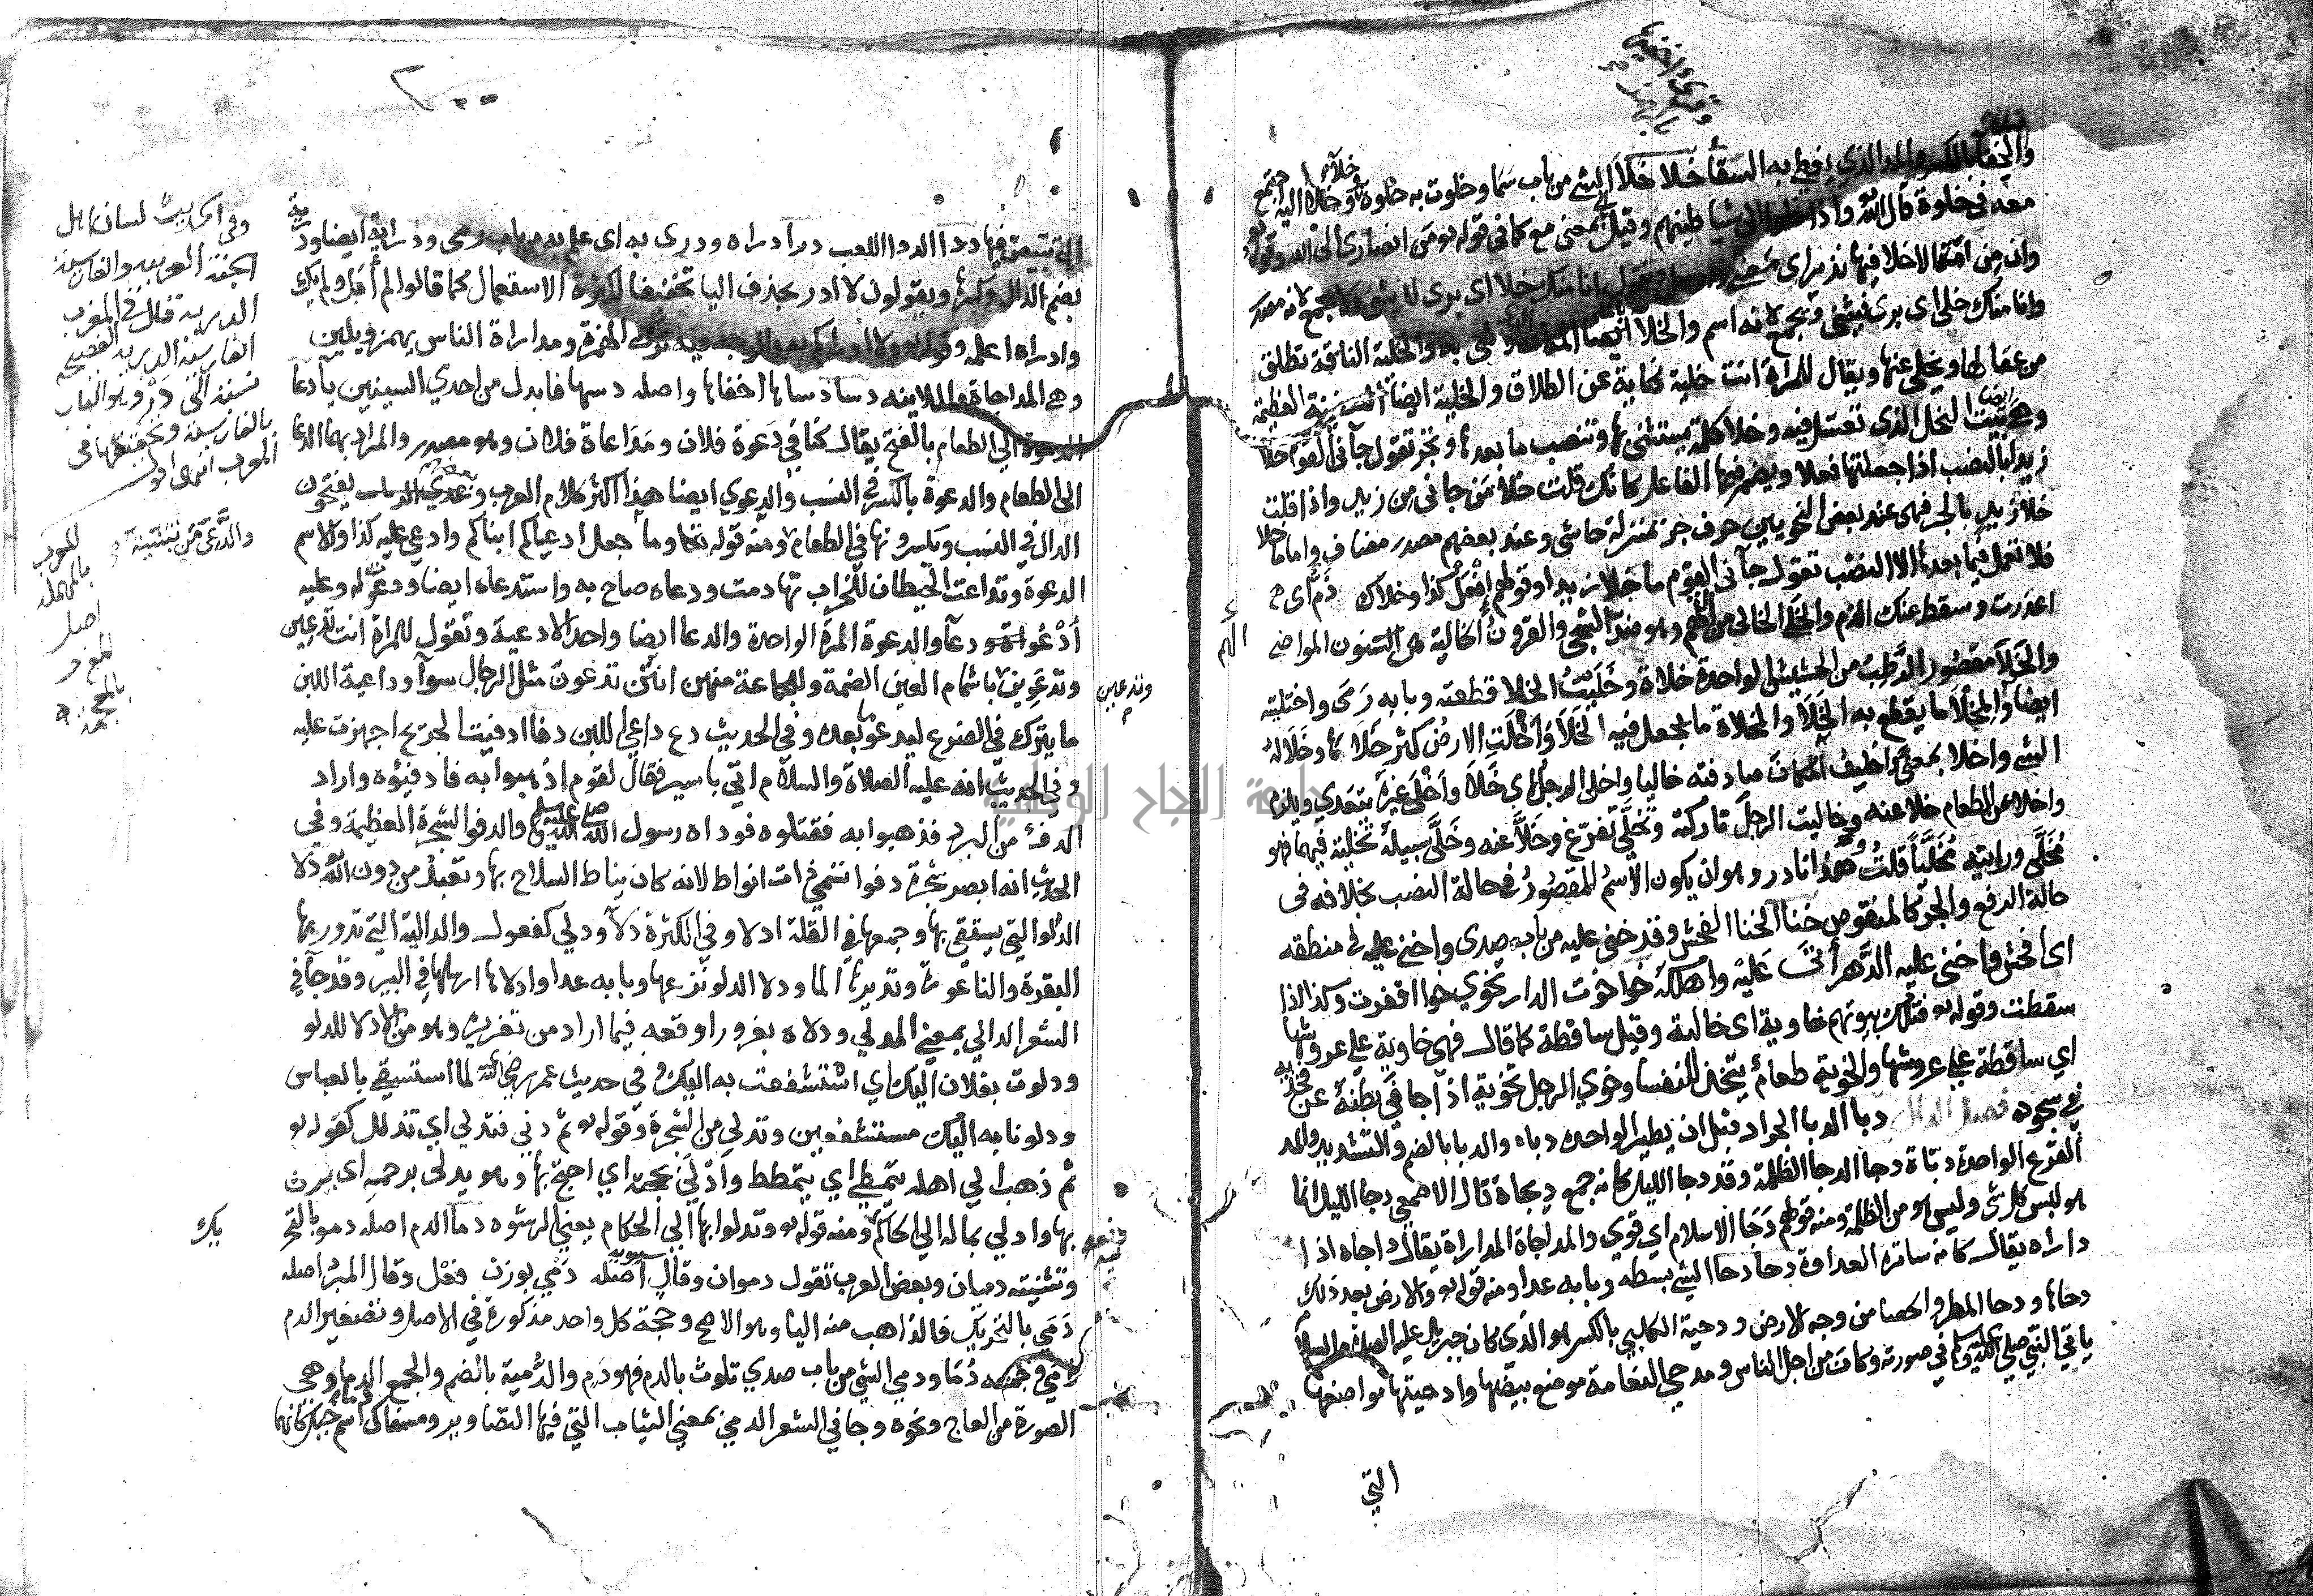 والخفا بالكسر والمد الذي يغطي به السقا خلا خلا الشي من باب سما وخلوت به خلوة وخلاء وخلا اليه اجتمع
معه في خلوة قال الله واذا خلوا الى شياطينهم وقيل الى بمعنى مع كما في قوله تع من انصاري الى الله وقوله تع
وان من امة الا خلا فيها نذير اي مضى وتقول انا منك خلا اي بري لا يثنى ولا يجمع لانه مصدر
وانا منك خلي اي بري فيثنى ويجمع لانه اسم والخلا ايضا والخلية الناقة تطلق
من عقالها ويخلى عنها ويقال للمراة انت خلية كناية عن الطلاق والخلية ايضا السفينة العظيمة
وهي ايضا بيت النحل الذي تعسل فيه وخلا كلمة يستثنى بها وتنصب ما بعدها وتجر تقول جآني القوم خلا
زيدا بالنصب اذا جعلتها فعلا ويضمر فيها الفاعل كانك قلت خلا من جاني من زيد واذا قلت
خلا زيد بالجر فهي عند بعض النحويين حرف جر بمنزلة حاشى وعند بعضهم مصدر مضاف واما ما خلا
فلا تعمل فيما بعدها الا النصب تقول جآني القوم ما خلا زيدا وقولهم افعل كذا وخلاك ذم اي
اعذرت وسقط عنك الذم والخلي الخالي من الهم وهو ضد الشجي والقرون الخالية هي السنون المواضي
والخلا مقصور الرطب من الحشيش الواحدة خلاة وخليت الخلا قطعته وبابه رمى واختليته
ايضا والمخلا ما يقطع به الخلا والمخلاة ما يجعل فيه الخلا واخلت الارض كثر خلاها وخلا له
الشي واخلا بمعنى واخليت المكان صادفته خاليا واخلى الرجل اي خلا واخلى غيره يتعدي ويلزم
واخلا عن الطعام خلا عنه وخاليت الرجل تاركته وتخلى تفرغ وخلا عنه وخلى سبيله تخلية فيهما فهو
مخلى ورايته مخليا قلت وهذا نادر وهو ان يكون الاسم المقصور في حالة النصب بخلافه في
حالة الرفع والجر كالمنقوص خنا الخنا الفحش وقد خنى عليه من باب صدي واخنى عليه في منطقه
اي افحش واخنى عليه الدهر اتى عليه واهلكه خوا خوت الدار تخوي خوا اقفرت وكذا اذا
سقطت وقوله تع فتلك بيوتهم خاوية اي خالية وقيل ساقطة كما قال فهي خاوية على عروشها
اي ساقطة على عروشها والخوية طعام يتخذ للنفسا وخوي الرجل تخوية اذا جافى بطنه عن فخذيه
في سجوده فصل الدال دبا الدبا الجراد قبل ان يطير الواحدة دباة والدبا بالضم والتشديد والمد
القرع الواحدة دباة دجا الدجا الظلمة وقد دجا الليل كانه جمع دجاة قال الاصمعي دجا الليل انما
هو لبس كل شي وليس هو من الظلمة ومنه قولهم دجا الاسلام اي قوي والمداجاة المداراة يقال داجاه اذا
داراه يقال كانه ساتره العداوة دحا دحا الشي بسطه وبابه عدا ومنه قوله تع والارض بعد ذلك
دحاها ودحا المطر الحصا من وجه الارض ودحية الكلبي بالكسر هو الذي كان جبريل عليه الصلاة والسلام
ياتي النبي صلى الله عليه وسلم في صورته وكان من اجل الناس ومدحي النعامة موضع بيضها وادحيتها مواضعها
التي
التي تبيض فيها ددا الددا اللعب درا دراه ودرى به اي علم به من باب رمى ودراية ايضا ودرية
بضم الدال وكسرها ويقولون لا ادر بحذف اليا تخفيفا لكثرة الاستعمال كما قالوا لم ابل ولم يك
وادراه اعلمه الهمزة ومداراة الناس يهمز ويلين
وهي المداجاة والملاينه دسا دساها اخفاها واصله دسسها فابدل من احدي السينين يا دعا
الدعوة الي الطعام بالفتح يقال كنا في دعوة فلان ومدعاة فلان وهو مصدر والمراد بهما الدعا
الي الطعام والدعوة بالكسر في النسب والدعوي ايضا هذا اكثر كلام العرب وعدي الرباب يفتحون
الدال في النسب ويكسرونها في الطعام ومنه قوله تعا وما جعل ادعياكم ابناكم وادعي عليه كذا والاسم
الدعوة وتداعت الحيطان للخراب تهادمت ودعاه صاح به واستدعاه ايضا ودعوت له وعليه
ادعوا دعآ والدعوة المرة الواحدة والدعا ايضا واحد الادعية وتقول للمراة انت تدعين
وتدعوين باشمام العين الضمة وللجماعة منهن انتن تدعون مثل الرجال سوآ وداعية اللبن
ما يترك في الضرع ليدعو ما بعده وفي الحديث دع داعي اللبن دفا ادفيت الجريح اجهزت عليه
وفي الحديث انه عليه الصلاة والسلام اتي باسير فقال لقوم اذهبوا به فادفؤه واراد
الدفء من البرد فذهبوا به فقتلوه فوداه رسول الله صلى الله عليه وسلم والدفوا الشجرة العظيمة وفي
الحديث انه ابصر شجرة دفوا تسمى ذات انواط لانه كان يناط السلاح بها وتعبد من دون الله دلا
الدلو التي يستقي بها وجمعها في القلة ادل وفي الكثرة دلآ ودلي كفعول والدالية التي تدور بها
البقرة والناعورة وتديرها الما ودلا الدلو نزعها وبابه عدا وادلاها ارسلها في البير وقد جآ في
الشعر الدالي بمعني المدلي ودلاه بغرور اوقعه فيما اراد من تغريره وهو من ادلا للدلو
ودلوت بفلان اليك اي استشفعت به اليك وفي حديث عمر رضي الله لما استسقى بالعباس
ودلونا به اليك مستشفعين وتدلى من الشجرة وقوله تع ثم دني فتدلي اي تدلل كقوله تع
ثم ذهب الي اهله يتمطي اي يتمطط وادلى بحجته اي احتج بها وهو يدلى برحمه اي يمت
بها وادلي بماله الي الحاكم دفعه ومنه قوله تع وتدلوا بها الي الحكام يعني الرشوه دما الدم اصله دمو بالتحريك
وتثنيته دميان وبعض العرب تقول دموان وقال سيبويه اصله دمي بوزن فعل وقال المبرد اصله
دمي بالتحريك فالذاهب منه اليا وهو الاصح وحجة كل واحد مذكورة في الاصل وتصغير الدم
دمي وجمعه دما ودمي الشي من باب صدي تلوث بالدم فهو دم والدمية بالضم والجمع الدما وهي
الصورة من العاج ونحوه وجا في الشعر الدمي بمعني الثياب التي فيها التصاوير
وتدعين
وفي الحديث لسان اهل
الجنة العربيه والفارسيه
الدريه قال في المغرب
الفارسية الدريه الفصيحه
نسبة الى در وهو الباب
بالفارسية
والدعي من تبنيته